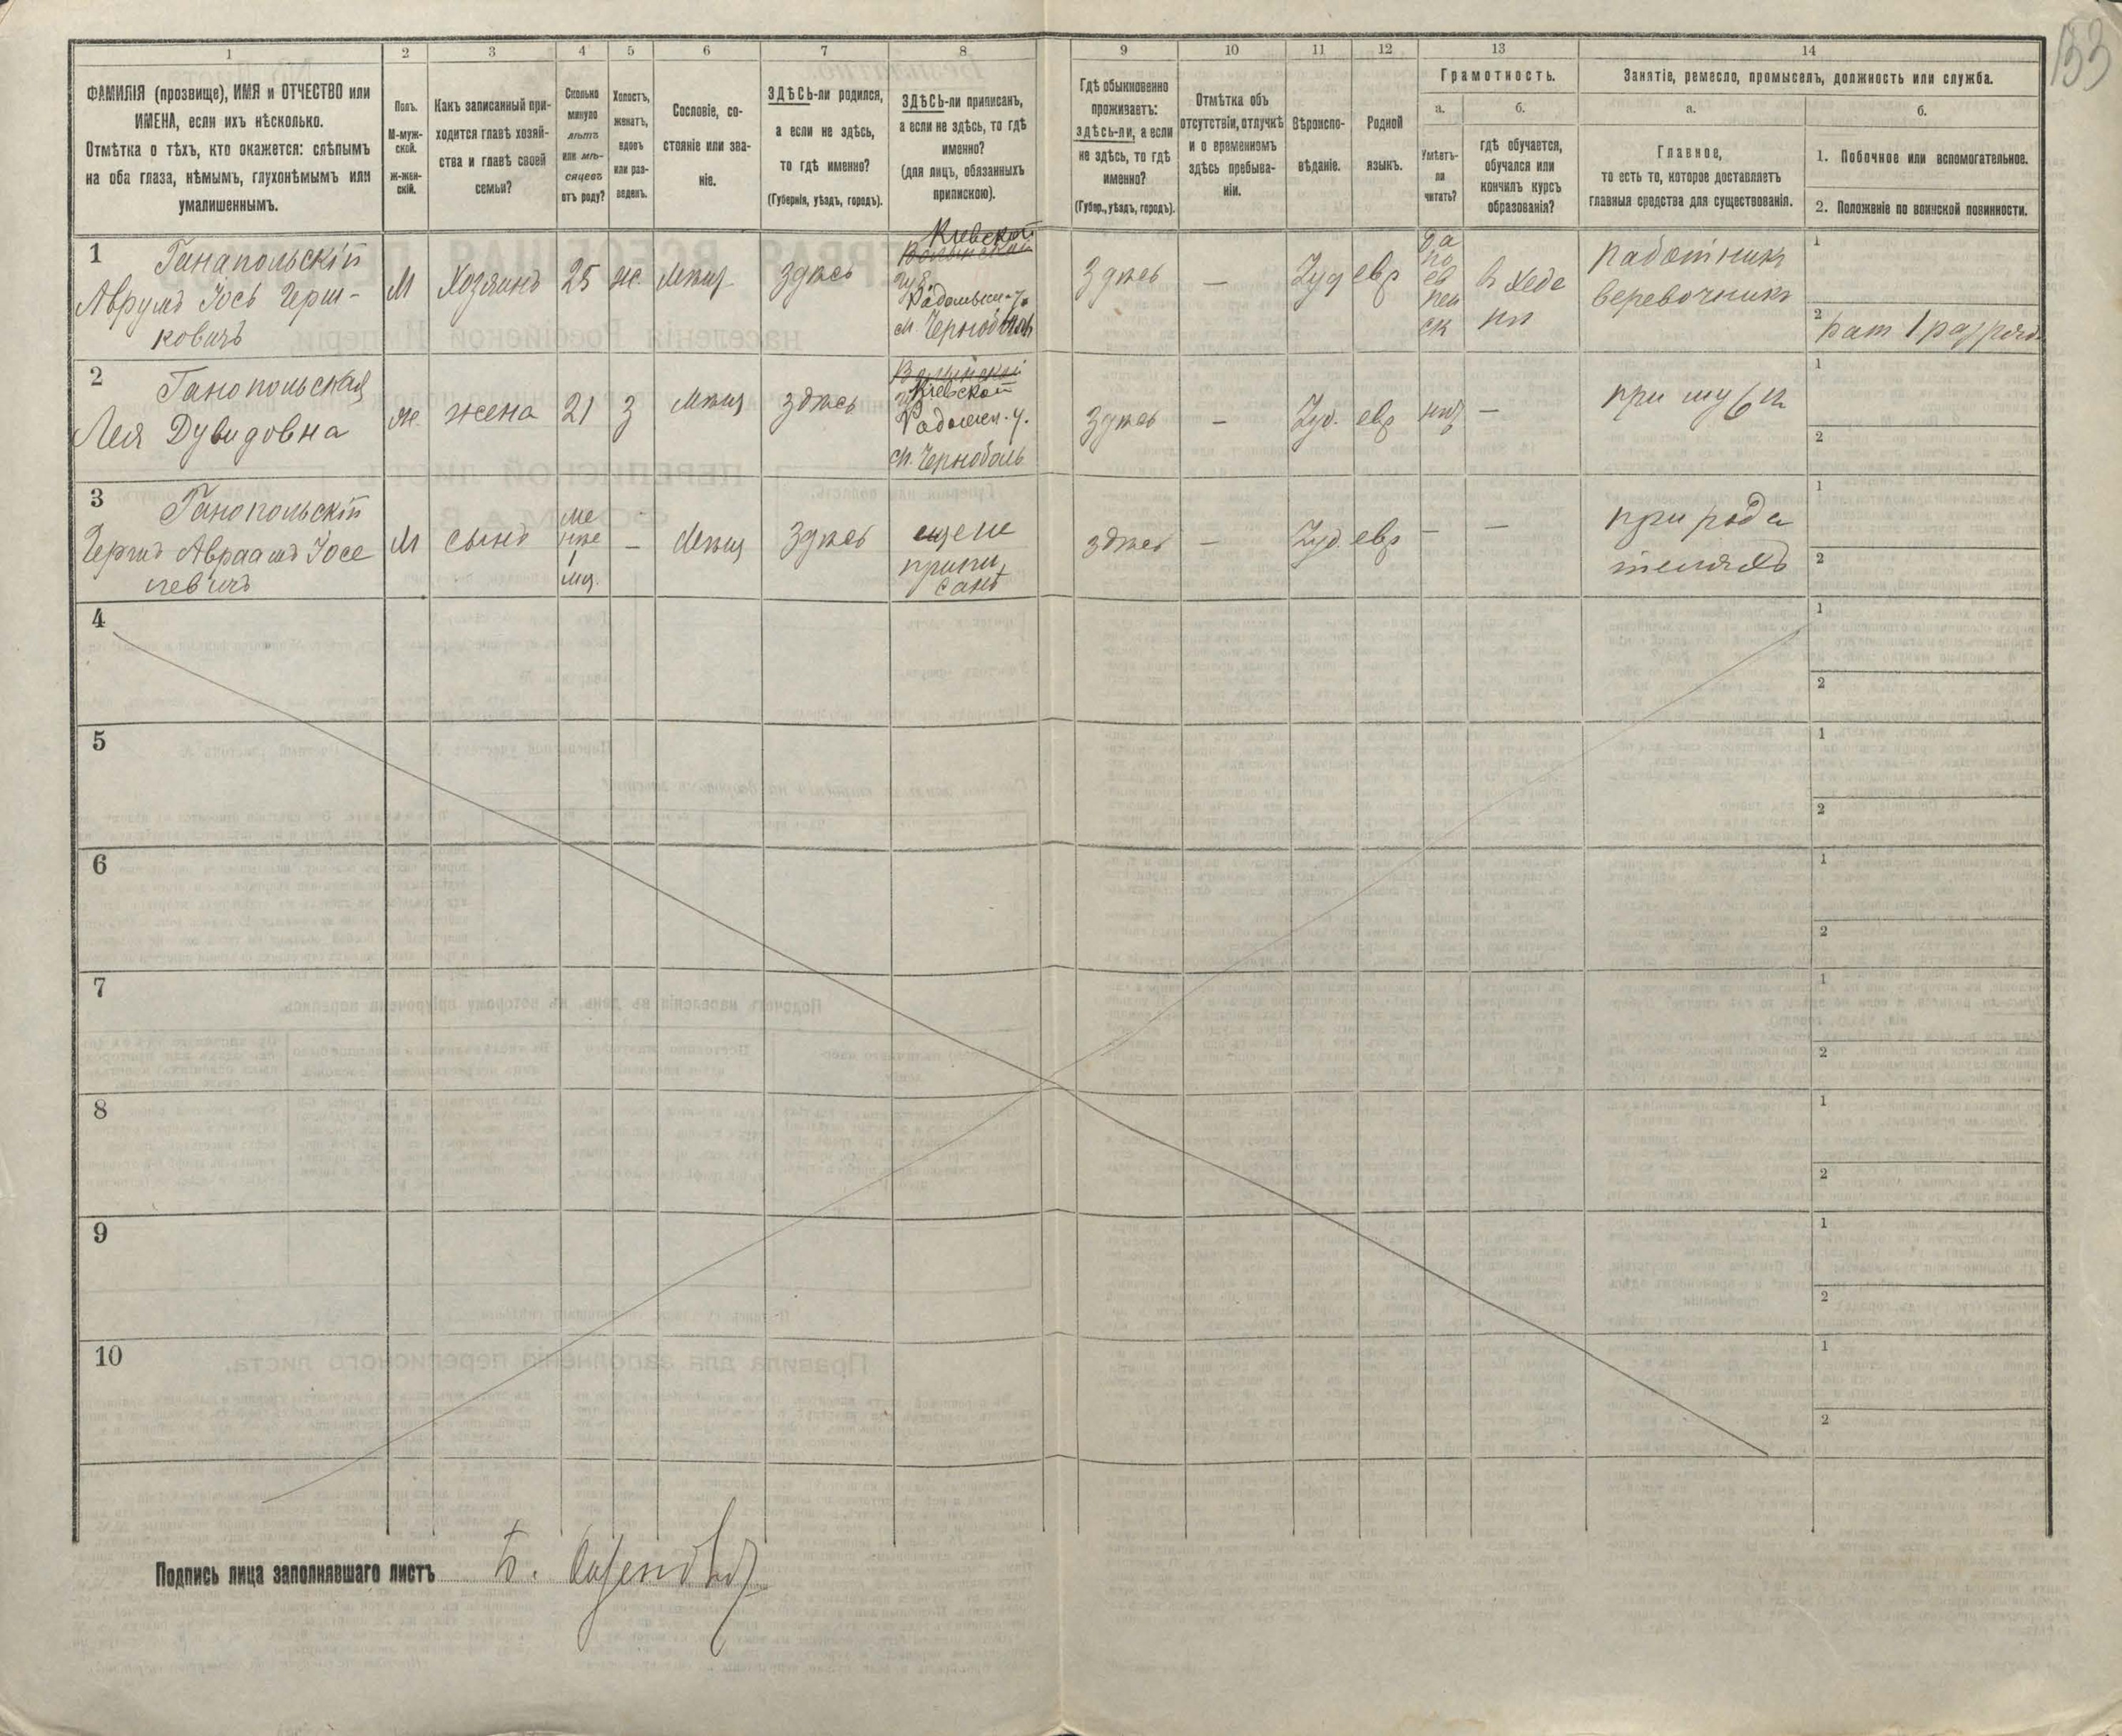 153
1 2 3 4 5 6 7 8 9 10 11 12 13 14
ФАМИЛІЯ (прозвище), ИМЯ и ОТЧЕСТВО или
ИМЕНА, если ихъ нѣсколько.
Отмѣтка о тѣхъ, кто окажется: слѣпымъ
на оба глаза, нѣмымъ, глухонѣмымъ или
умалишеннымъ.
Полъ.
М-муж-
ской.
Ж-жен-
скій.
Какъ записанный при-
ходится главѣ хозяй-
ства и главѣ своей
семьи?
Сколько
минуло
лѣтъ
или мѣ-
сяцевъ
отъ роду?
Холостъ,
женатъ,
вдовъ
или раз-
веденъ.
Сословіе, со-
стояніе или зва-
ніе.
ЗДѢСЬ-ли родился,
а если не здѣсь,
то гдѣ именно?
(Губернія, уѣздъ, городъ).
ЗДѢСЬ-ли приписанъ,
а если не здѣсь, то гдѣ
именно?
(для лицъ, обязанныхъ
припискою).
Гдѣ обыкновенно
проживаетъ:
здѣсь-ли, а если
не здѣсь, то гдѣ
именно?
(Губер., уѣздъ, городъ).
Отмѣтка объ
отсутствіи, отлучкѣ
и о временномъ
здѣсь пребыва-
ніи.
Вѣроиспо-
вѣданіе.
Родной
языкъ.
Грамотность.
а.
Умѣетъ-
ли
читать?
б.
гдѣ обучается,
обучался или
кончилъ курсъ
образованія?
Занятіе, ремесло, промыселъ, должность или служба.
а.
Главное,
то есть то, которое доставляетъ
главныя средства для существованія.
б.
1. Побочное или вспомогательное.
2. Положеніе по воинской повинности.
1
Ганапольскій
Аврумъ Іось Герш-
ковичъ
М
Хозяинъ
25
ж.
Мѣщ.
Здѣсь
Кіевской
Волынской
губ.
Радомысл. у.
м. Чернобыль
Здѣсь
—
Іуд
евр
да
по
ев
рей
ск
в хеде
рѣ
Работникъ
веревочникъ
1
2
рат 1 разряда
2
Ганопольская
Лея Дувидовна
ж.
жена
21
З
Мѣщ
здѣсь
Волынской
Кіевской
Радомысл. у.
м. Чернобыль
Здѣсь
—
Іуд.
евр
нѣт
—
при мужѣ
1
2
3
Ганопольскій
Гершъ Авраамъ Іосе
певичъ
М
сынъ
ме
нѣе
1
мц.
—
Мѣщ
Здѣсь
еще не
припи
санъ
здѣсь
—
Іуд.
евр
—
—
при роди
теляхъ
1
2
4
1
2
5
1
2
6
1
2
7
1
2
8
1
2
9
1
2
10
1
2
Подпись лица заполнявшаго листъ